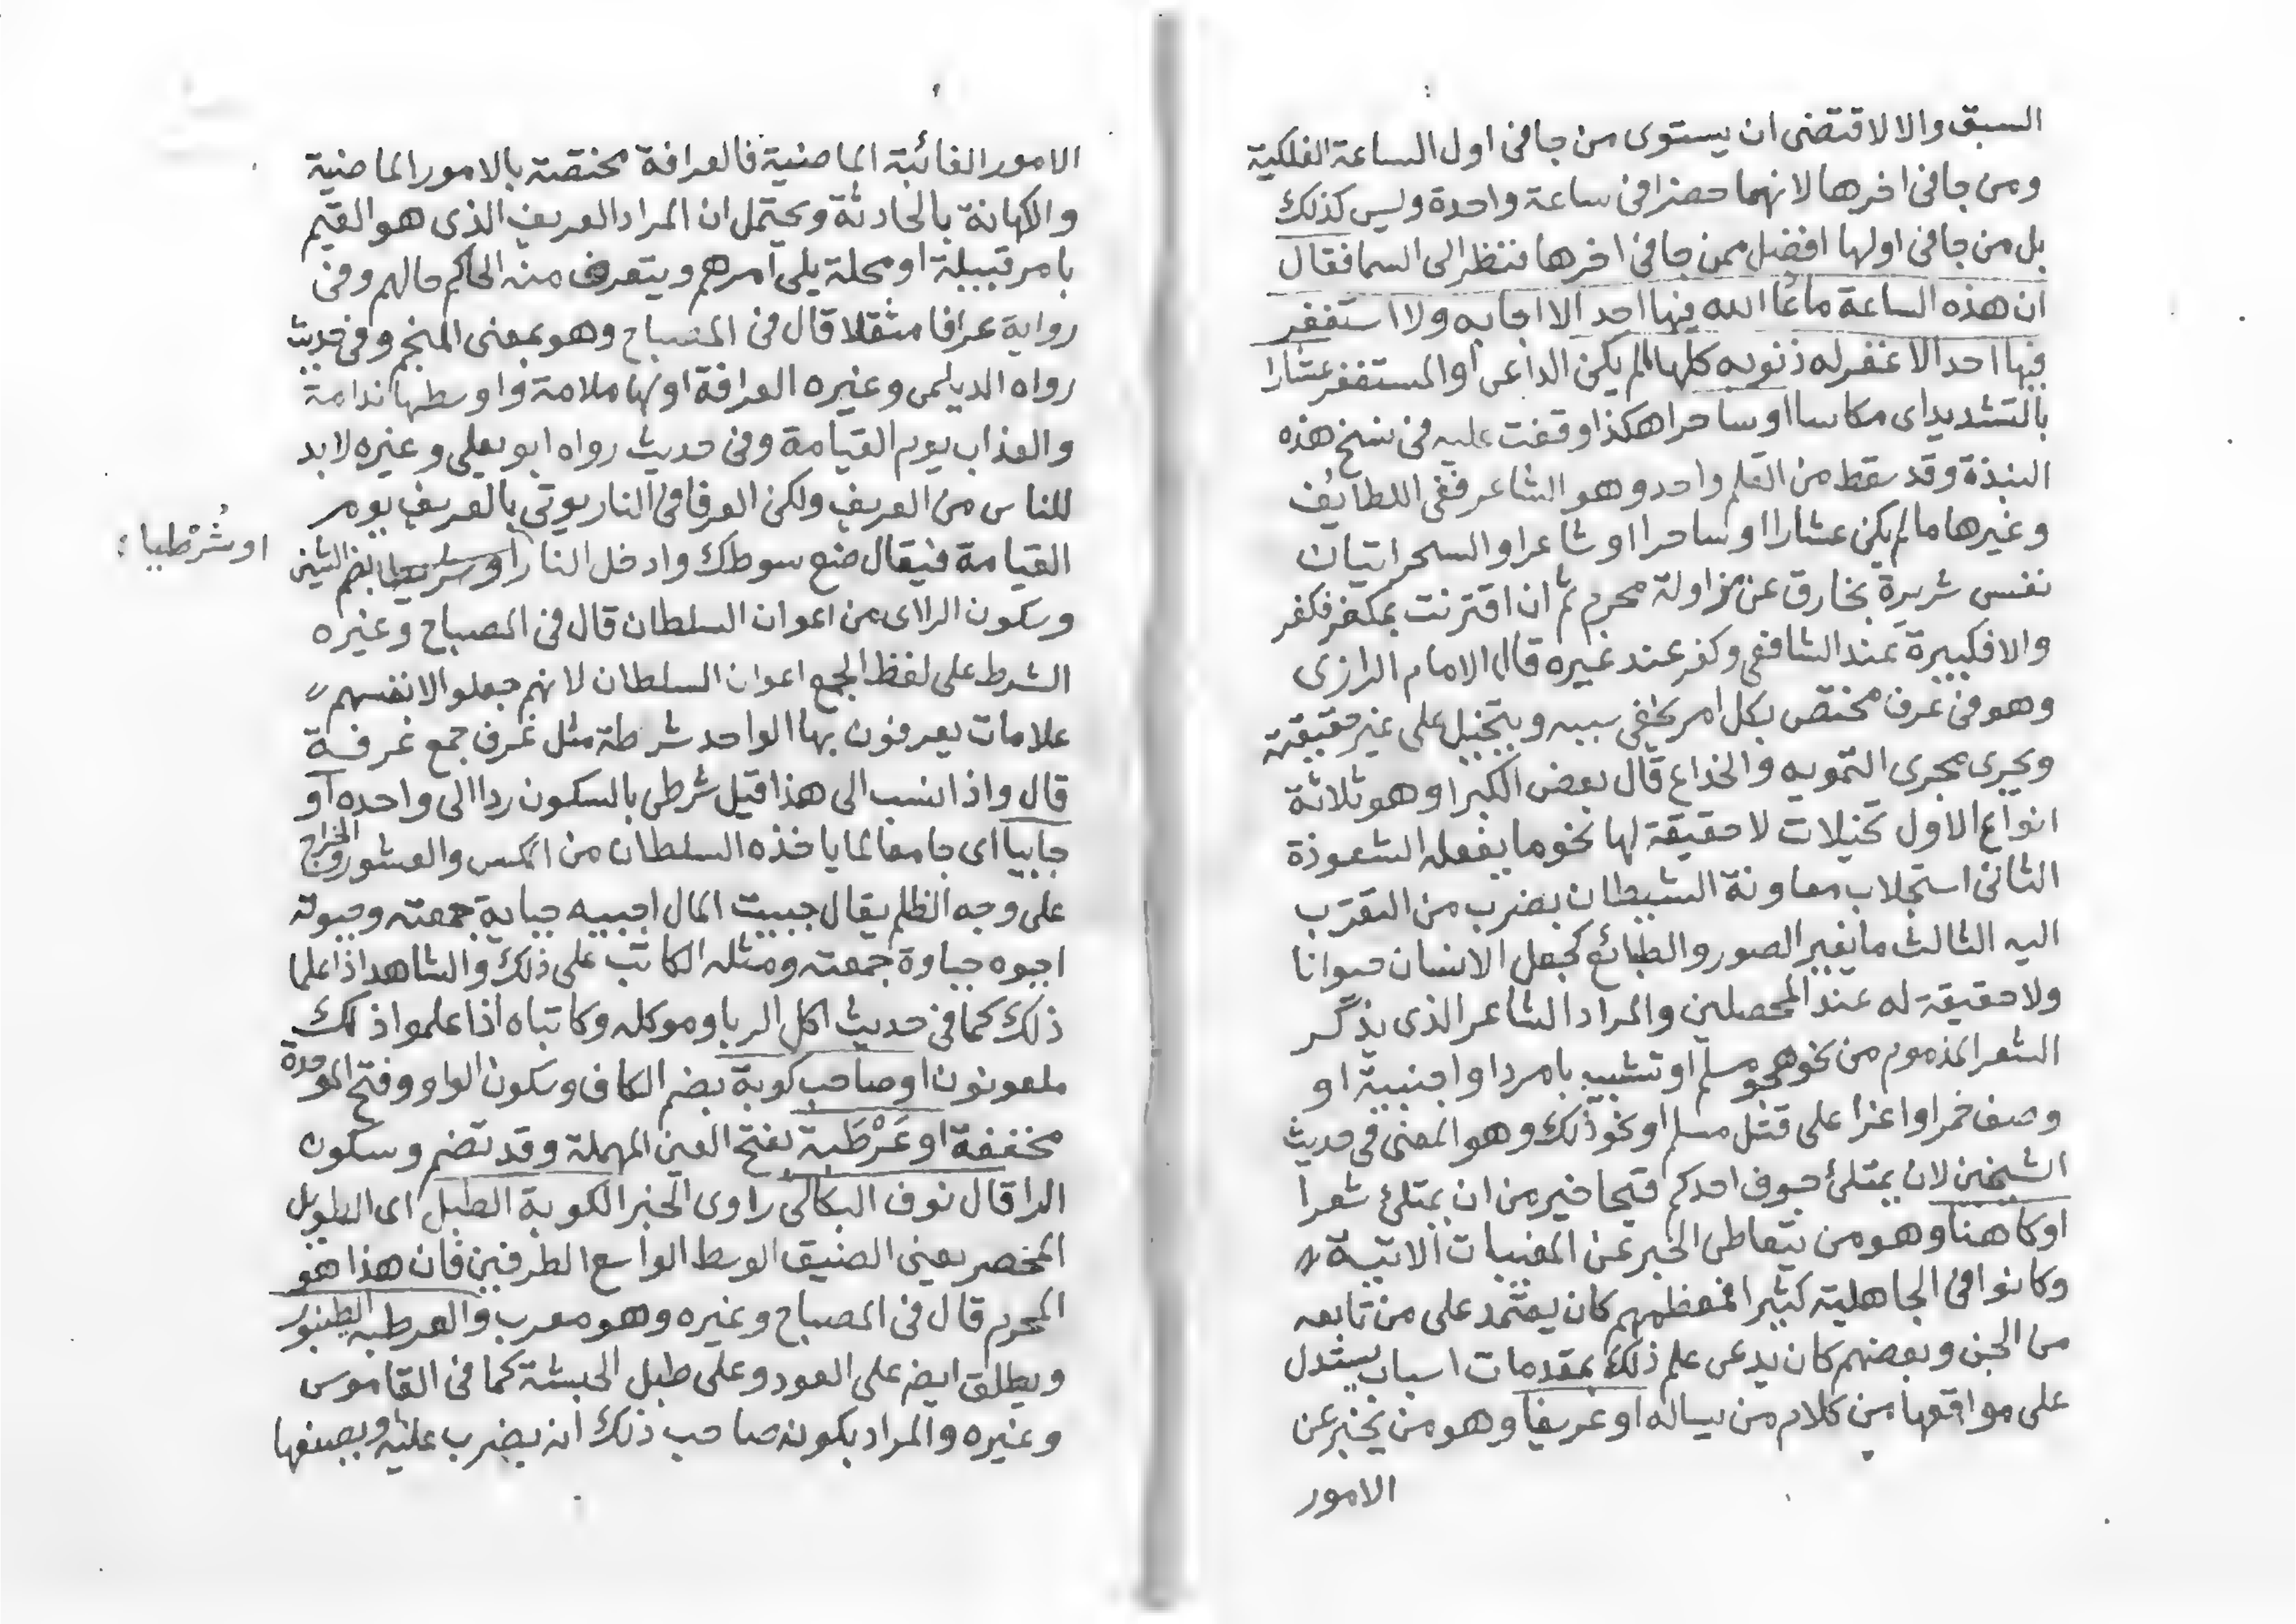 السبق والا لاقتضى ان يستوى من جا فى اول الساعة الفلكية
ومن جا فى اخرها لانهما حضرا فى ساعة واحدة وليس كذلك
بل من جا فى اولها افضل ممن جا فى اخرها فنظر الى السما فقال
ان هذه الساعة ما دعا الله فيها احد الا اجابه ولا استغفر
فيها احد الا غفر له ذنوبه كلها ما لم يكن الداعى او المستغفر عشارا
بالتشديد اى مكاسا او ساحرا هكذا وقفت عليه فى نسخ هذه
النبذة وقد سقط من القلم واحد وهو الشاعر ففى اللطايف
وغيرها ما لم يكن عشارا او ساحرا او شاعرا والسحر اتيان
نفس شريرة بخارق عن مزاولة محرم ثم ان اقترنت بمكفر فكفر
والا فكبيرة عند الشافعى وكفر عند غيره قال الامام الرازى
وهو فى عرف مختص بكل امر يخفى سببه ويتخيل على غير حقيقته
ويجرى مجرى التمويه والخداع قال بعض الكبرا وهو ثلاثة
انواع الاول تخيلات لا حقيقة لها نحو ما يفعله الشعوذة
الثانى استجلاب معاونة الشيطان بضرب من التقرب
اليه الثالث ما يغير الصور والطبائع كجعل الانسان حيوانا
ولا حقيقة له عند المحصلين والمراد الشاعر الذى يذكر
الشعر المذموم من نحو هجو مسلم او تشبيب بامرد او اجنبية او
وصف خمر او اغرا على قتل مسلم او نحو ذلك وهو المعنى فى حديث
الشيخين لان يمتلئ جوف احدكم قيحا خير من ان يمتلئ شعرا
او كاهنا وهو من يتعاطى الخبر عن المغيبات الاتية
وكانوا فى الجاهلية كثيرا فمعظمهم كان يعتمد على من تابعه
من الجن وبعضهم كان يدعى علم ذلك بمقدمات اسباب يستدل
على مواقعها من كلام من يساله او عريفا وهو من يخبر عن
الامور
الامور الغائبة الماضية فالعرافة مختصة بالامور الماضية
والكهانة بالحادثة ويحتمل ان المراد العريف الذى هو القيم
بامر قبيلة او محلة يلى امرهم ويتعرف منه الحاكم حالهم وفى
رواية عرافا مثقلا قال فى المصباح وهو بمعنى المنجم وفى حديث
رواه الديلمى وغيره العرافة اولها ملامة واوسطها ندامة
والعذاب يوم القيامة وفى حديث رواه ابو يعلى وغيره لا بد
للناس من العريف ولكن العرفا فى النار يوتى بالعريف يوم
القيامة فيقال ضع سوطك وادخل النار او شرطيا بضم الشين
او شُرْطيا :
وسكون الرا اى من اعوان السلطان قال فى المصباح وغيره
الشرط على لفظ الجمع اعوان السلطان لانهم جعلوا لانفسهم
علامات يعرفون بها الواحد شرطة مثل غرف جمع غرفة
قال واذا نسب الى هذا قيل شرطى بالسكون ردا الى واحده او
جابيا اى جامعا لما ياخذه السلطان من المكس والعشور والخراج
على وجه الظلم يقال جبيت المال اجبيه جباية جمعته وجبوته
اجبوه جباوة جمعته ومثله الكاتب على ذلك والشاهد اذا علما
ذلك كما فى حديث اكل الربا وموكله وكاتباه اذا علموا ذلك
ملعونون او صاحب كوبة بضم الكاف وسكون الواو وفتح الموحدة
مخففة او عَرْطَبة بفتح العين المهملة وقد تضم وسكون
الرا قال نوف البكالى راوى الخبر الكوبة الطبل اى الطويل
المخصر يعنى الضيق الوسط الواسع الطرفين فان هذا هو
المحرم قال فى المصباح وغيره وهو معرب والعرطبة الطنبور
ويطلق ايضم على العود وعلى طبل الحبشة كما فى القاموس
وغيره والمراد بكونه صاحب ذلك انه يضرب عليه ويصنعها